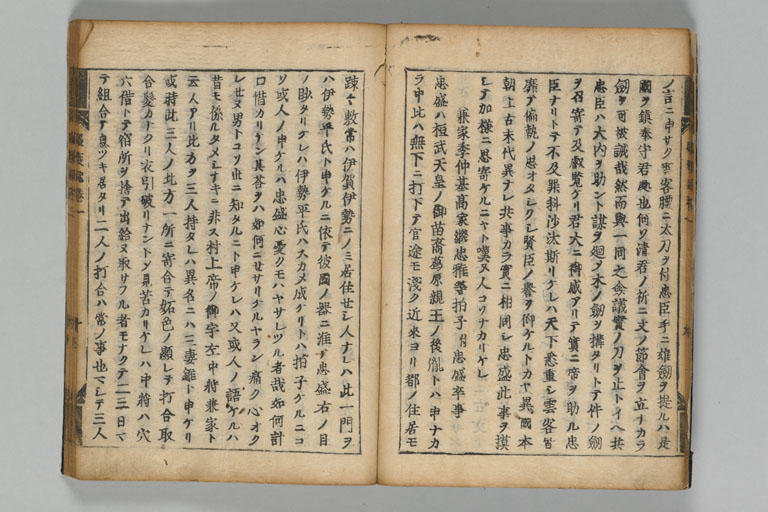 ノ言ニ申サク雲客腰ニ太刀ヲ付忠臣手ニ雄劔ヲ提ルハ是
國ヲ鎮奉守君處也何ソ清君ノ祈ニ丈ノ節會ヲ立ナカラ
劔ヲ可被誡哉然而與一同之僉議實ノ刀ヲ止トイヘ共
忠臣ハ大内ヲ助ント謀ヲ廻メ木ノ劔ヲ搆タリトテ件ノ劔
ヲ召寄テ及叡覧ケリ君大ニ御感アリテ實ニ帝ヲ助ル忠
臣ナリトテ不及罪科沙汰斯リケレハ天下悉重シ雲客皆
靡テ偏執ノ思オ賢臣ノ譽ヲ仰ケルトカヤ異國本
朝上古末代異ナレ共事カラ實ニ相同シ忠盛此事ヲ摸
シテ加様ニ思寄ケルニヤト嘆ヌ人コソナカリケレ
兼家季仲基高家繼忠雅等拍子付忠盛卒事
忠盛ハ桓武天皇ノ御苗裔葛原親王ノ後胤トハ申ナカ
ラ中比ハ無下ニ打下テ官途モ淺ク近来ヨリ都ノ住居モ
疎々敷常ハ伊賀伊勢ニノミ居住セシ人ナレハ此一門ヲ
ハ伊勢平氏ト申ケルニ依テ彼國ノ器ニ准テ忠盛右ノ目
ノ眇タリケレハ伊勢平氏ハスカメ成ケリトハ拍子ケルニコ
ソ或人ノ申ケルハ忠盛心憂クモハヤサレツル者哉如何計
口惜カリケン其答ヲハ如何ニセサリケルヤラン痛ク心オク
レセヌ男トコソ世ニ知タルニト申ケレハ又或人ノ語ケルハ
昔モ係ルタメシナキニ非ス村上帝ノ御宇左中將兼家ト
云人アリ北方ヲ三人持タレハ異名ニハ三妻錐ト申ケリ
或時此三人ノ北方一所ニ寄合テ妬色ノ顯レテ打合取
合髪カナクリ衣引破リナントメ見苦カリケレハ中將ハ穴
六借トテ宿所ヲ捨テ出給ヌ取サフル者モナクテ二三日マ
テ組合テ息ツキ居タリ二人ノ打合ハ常ノ事也マシテ三人